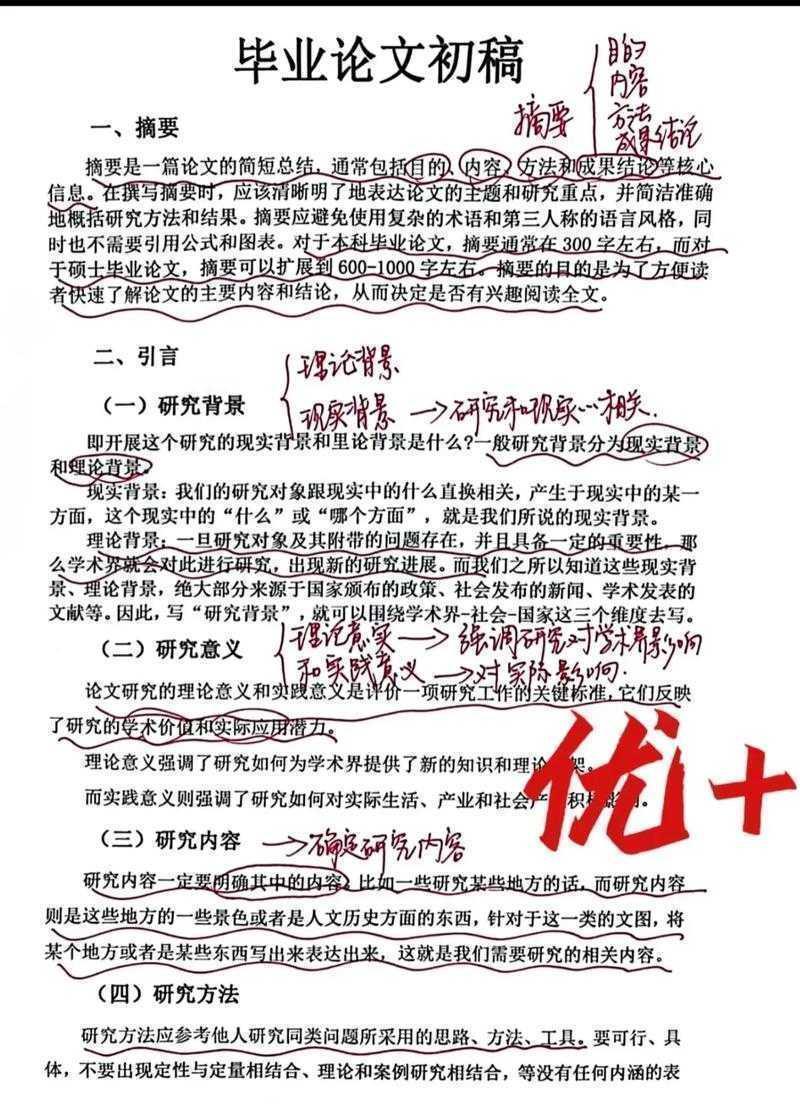 毕业论文初稿
目的
内容
方法
成果结论
摘要
一、摘要
摘要是一篇论文的简短总结，通常包括目的、内容、方法和成果结论等核心
信息。在撰写摘要时，应该清晰明了地表达论文的主题和研究重点，并简洁准确
地概括研究方法和结果。摘要应避免使用复杂的术语和第三人称的语言风格，同
时也不需要引用公式和图表。对于本科毕业论文，摘要通常在 300 字左右，而对
于硕士毕业论文，摘要可以扩展到 600-1000 字左右。摘要的目的是为了方便读
者快速了解论文的主要内容和结论，从而决定是否有兴趣阅读全文。
二、引言
理论背景
（一）研究背景
现实背景 →研究和现实……相关.
即开展这个研究的现实背景和里论背景是什么?一般研究背景分为现实背景
和理论背景。
现实背景：我们的研究对象跟现实中的什么直换相关，产生于现实中的某一
方面，这个现实中的“什么”或“哪个方面”，就是我们所说的现实背景。
理论背景：一旦研究对象及其附带的问题存在，并且具备一定的重要性，那
么学术界就会对此进行研究，出现新的研究进展。而我们之所以知道这些现实背
景、理论背景，绝大部分来源于国家颁布的政策、社会发布的新闻、学术发表的
文献等。因此，写“研究背景”,就可以围绕学术界-社会-国家这三个维度去写。
（二）研究意义
理论意实 → 强调研究对学术界影响
和实践意义 →对实际影响.
论文研究的理论意义和实践意义是评价一项研究工作的关键标准，它们反映
了研究的学术价值和实际应用潜力。
理论意义强调了研究如何为学术界提供了新的知识和理论架。
而实践意义则强调了研究如何对实际生活、产业和社会产积影。
优+
（三）研究内容
→确定研究内容
研究内容一定要明确其中的内容，比如一些研究某些地方的话，而研究内容
则是这些地方的一些景色或者是人文历史方面的东西，针对于这一类的文图，将
某个地方或者是某些东西写出来表达出来，这就是我们需要研究的相关内容。
（四）研究方法
研究方法应参考他人研究同类问题所采用的思路、方法、工具。要可行、具
体，不要出现定性与定量相结合、理论和案例研究相结合，等没有任何内涵的表